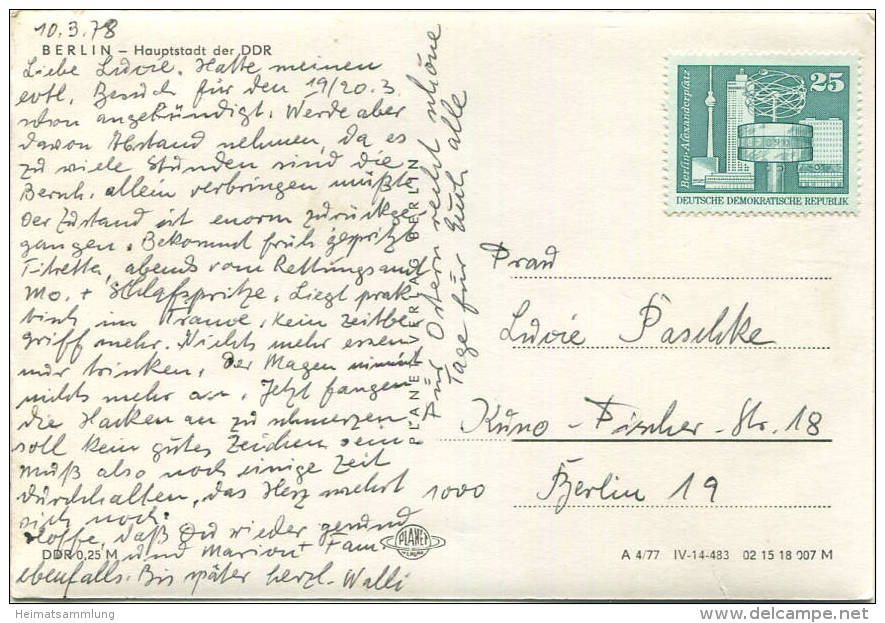 10.3.78
BERLIN – Hauptstadt der DDR
Liebe Lucie. Hatte meinen
evtl. Besuch für den 19/20.3.
schon angekündigt. Werde aber
davon Abstand nehmen, da es
zu viele Stunden sind die
Bernh. allein verbringen müßte
Der Zustand ist enorm zurückge
gangen. Bekommt früh gespritzt
Titretta, abends vom Rettungsamt
Mo. + Schlafspritze. Liegt prak
tisch im Traume, kein Zeitbe
griff mehr. Nichts mehr essen
nur trinken. Der Magen nimmt
nichts mehr an. Jetzt fangen
die Hacken an zu schmerzen
soll kein gutes Zeichen sein
muß also noch einige Zeit
durchhalten, das Herz wehrt
sich noch.
Hoffe, daß Du wieder gesund
und Marion + Fam.
ebenfalls. Bis später herzl. Walli
DDR 0,25 M
PLANET-VERLAG BERLIN
Für Ostern recht schöne
Tage für Euch alle
PLANET
25
Berlin-Alexanderplatz
DEUTSCHE DEMOKRATISCHE REPUBLIK
Frau
Lucie Paschke
Kuno-Fischer-Str. 18
1000 Berlin 19
A 4/77 IV-14-483 02 15 18 007 M
Heimatsammlung
www.delcampe.net